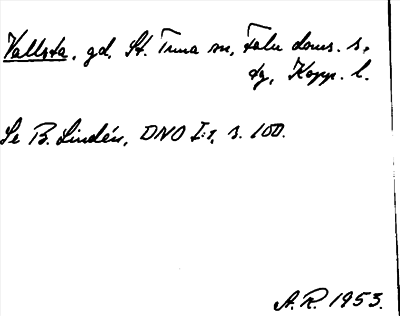 Vallsta, gd, St. Tuna sn, Falu doms. s,
tg, Kopp. l.
Se B. Lindén, DNO I:1, s. 100.
A. R. 1953.